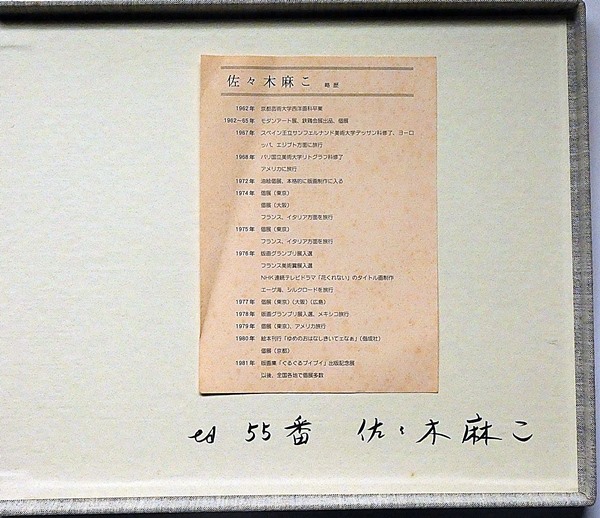 佐々木麻こ 略歴
1962年 京都芸術大学西洋画科卒業
1962〜65年 モダンアート展、鉄鶏会展出品、個展
1967年 スペイン王立サンフェルナンド美術大学デッサン科修了、ヨーロ
ッパ、エジプト方面に旅行
1968年 パリ国立美術大学リトグラフ科修了
アメリカに旅行
1972年 油絵個展、本格的に版画制作に入る
1974年 個展（東京）
個展（大阪）
フランス、イタリア方面を旅行
1975年 個展（東京）
フランス、イタリア方面を旅行
1976年 版画グランプリ展入選
フランス美術賞展入選
NHK連続テレビドラマ「花くれない」のタイトル画制作
エーゲ海、シルクロードを旅行
1977年 個展（東京）（大阪）（広島）
1978年 版画グランプリ展入選、メキシコ旅行
1979年 個展（東京）、アメリカ旅行
1980年 絵本刊行「ゆめのおはなしきいてェなぁ」（偕成社）
個展（京都）
1981年 版画集「ぐるぐるブイブイ」出版記念展
以後、全国各地で個展多数
ed 55番 佐々木麻こ